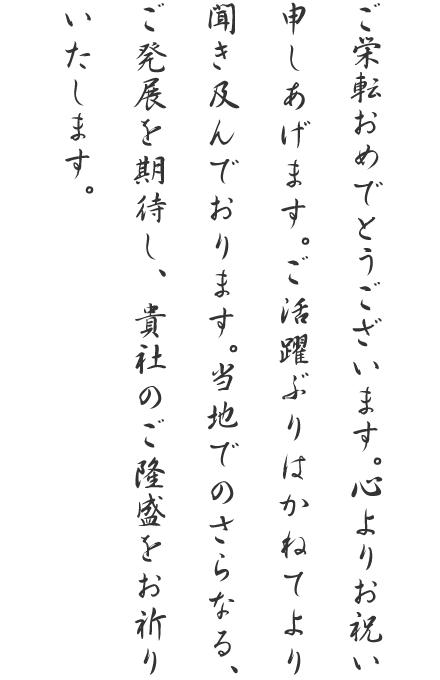 ご栄転おめでとうございます。心よりお祝い
申しあげます。ご活躍ぶりはかねてより
聞き及んでおります。当地でのさらなる、
ご発展を期待し、貴社のご隆盛をお祈り
いたします。